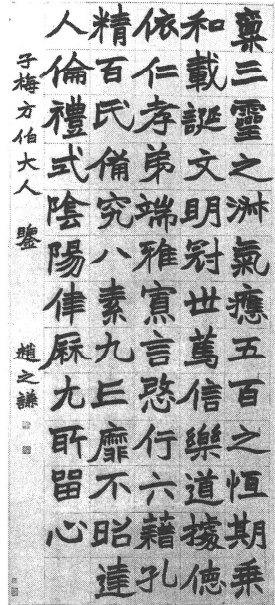 稟三靈之淑氣應五百之恆期乘
和載誕文明冠世篤信樂道據德
依仁孝弟端雅寡言慜行六藉孔
精百氏備究八素九丘靡不昭達
人倫禮式陰陽律厤尤所留心
子梅方伯大人 鑒 趙之謙